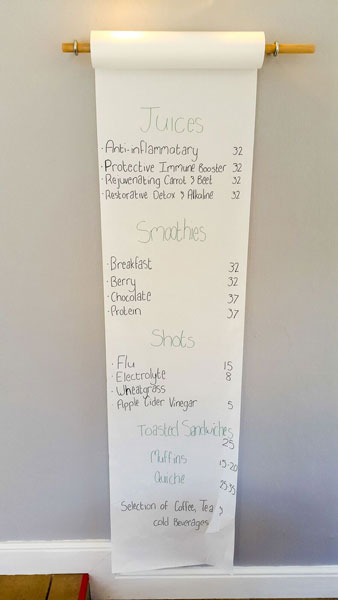 Juices
· Anti-inflammatory 32
· Protective Immune Booster 32
· Rejuvenating Carrot & Beet 32
· Restorative Detox & Alkaline 32
Smoothies
· Breakfast 32
· Berry 32
· Chocolate 37
· Protein 37
Shots
· Flu 15
· Electrolyte 8
· Wheatgrass
Apple Cider Vinegar 5
Toasted Sandwiches
25
Muffins 15-20
Quiche 25-35
Selection of Coffee, Tea &
cold Beverages